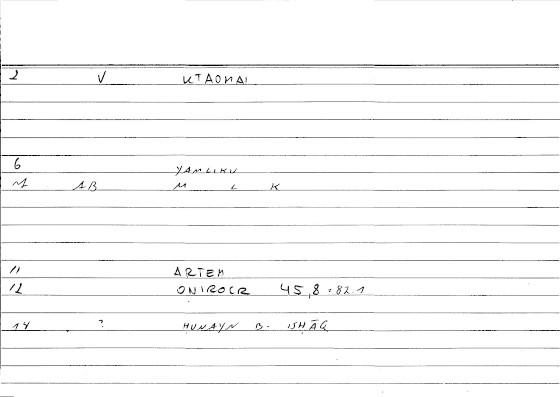 2 V KTAOMAI
6 YAMLIKU
M AB M L K
11 ARTEM
12 ONIROCR 45,8 = 82.1
14 ? HUNAYN B. ISHĀQ